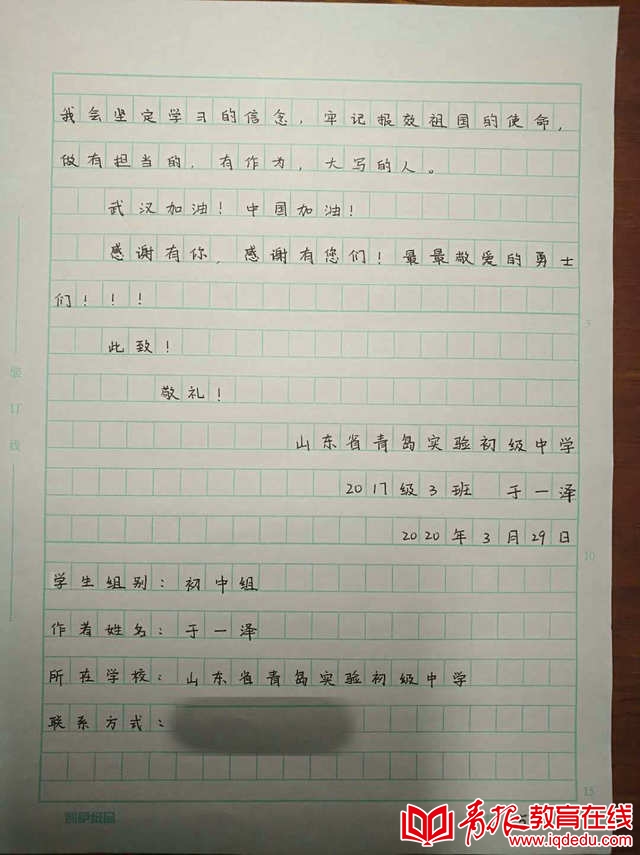 我会坚定学习的信念，牢记报效祖国的使命，
做有担当的，有作为，大写的人。
武汉加油！中国加油！
感谢有你，感谢有您们！最最敬爱的勇士
们！！！
5
此致！
敬礼！
装订线
山东省青岛实验初级中学
2017级3班 于一泽
2020年3月29日
10
学生组别：初中组
作者姓名：于一泽
所在学校：山东省青岛实验初级中学
联系方式：
15
青报教育在线
www.iqdedu.com